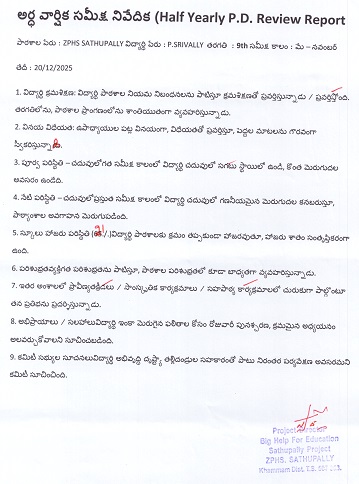 అర్ధ వార్షిక సమీక్ష నివేదిక (Half Yearly P.D. Review Report
పాఠశాల పేరు : ZPHS SATHUPALLY విద్యార్థి పేరు : P.SRIVALLY తరగతి : 9th సమీక్ష కాలం : మే – నవంబర్
తేదీ : 20/12/2025
1. విద్యార్థి క్రమశిక్షణ: విద్యార్థి పాఠశాల నియమ నిబంధనలను పాటిస్తూ క్రమశిక్షణతో ప్రవర్తిస్తున్నాడు / ప్రవర్తిస్తోంది.
తరగతిలోను, పాఠశాల ప్రాంగణంలోను శాంతియుతంగా వ్యవహరిస్తున్నాడు.
2. వినయ విధేయత: ఉపాధ్యాయుల పట్ల వినయంగా, విధేయతతో ప్రవర్తిస్తూ, పెద్దల మాటలను గౌరవంగా
స్వీకరిస్తున్నా
3. పూర్వ పరిస్థితి – చదువులోగత సమీక్ష కాలంలో విద్యార్థి చదువులో సగటు స్థాయిలో ఉండి, కొంత మెరుగుదల
అవసరం ఉండేది.
4. నేటి పరిస్థితి – చదువులోప్రస్తుత సమీక్ష కాలంలో విద్యార్థి చదువులో గణనీయమైన మెరుగుదల కనబరుస్తూ,
పాఠ్యాంశాల అవగాహన మెరుగుపడింది.
5. స్కూలు హాజరు పరిస్థితి ( /.)విద్యార్థి పాఠశాలకు క్రమం తప్పకుండా హాజరవుతూ, హాజరు శాతం సంతృప్తికరంగా
ఉంది.
6. పరిశుభ్రతవ్యక్తిగత పరిశుభ్రతను పాటిస్తూ, పాఠశాల పరిశుభ్రతలో కూడా బాధ్యతగా వ్యవహరిస్తున్నాడు.
7. ఇతర అంశాలలో ప్రావీణ్యతక్రీడలు / సాంస్కృతిక కార్యక్రమాలు / సహపాఠ్య కార్యక్రమాలలో చురుకుగా పాల్గొంటూ
తన ప్రతిభను ప్రదర్శిస్తున్నాడు.
8. అభిప్రాయాలు / సలహాలువిద్యార్థి ఇంకా మెరుగైన ఫలితాల కోసం రోజువారీ పునశ్చరణ, క్రమమైన అధ్యయనం
అలవర్చుకోవాలని సూచించబడింది.
9. కమిటీ సభ్యుల సూచనలువిద్యార్థి అభివృద్ధి దృష్ట్యా తల్లిదండ్రుల సహకారంతో పాటు నిరంతర పర్యవేక్షణ అవసరమని
కమిటీ సూచించింది.
Project Director
Big Help For Education
Sathupally Project
ZPHS. SATHUPALLY
Khammam Dist. T.S.